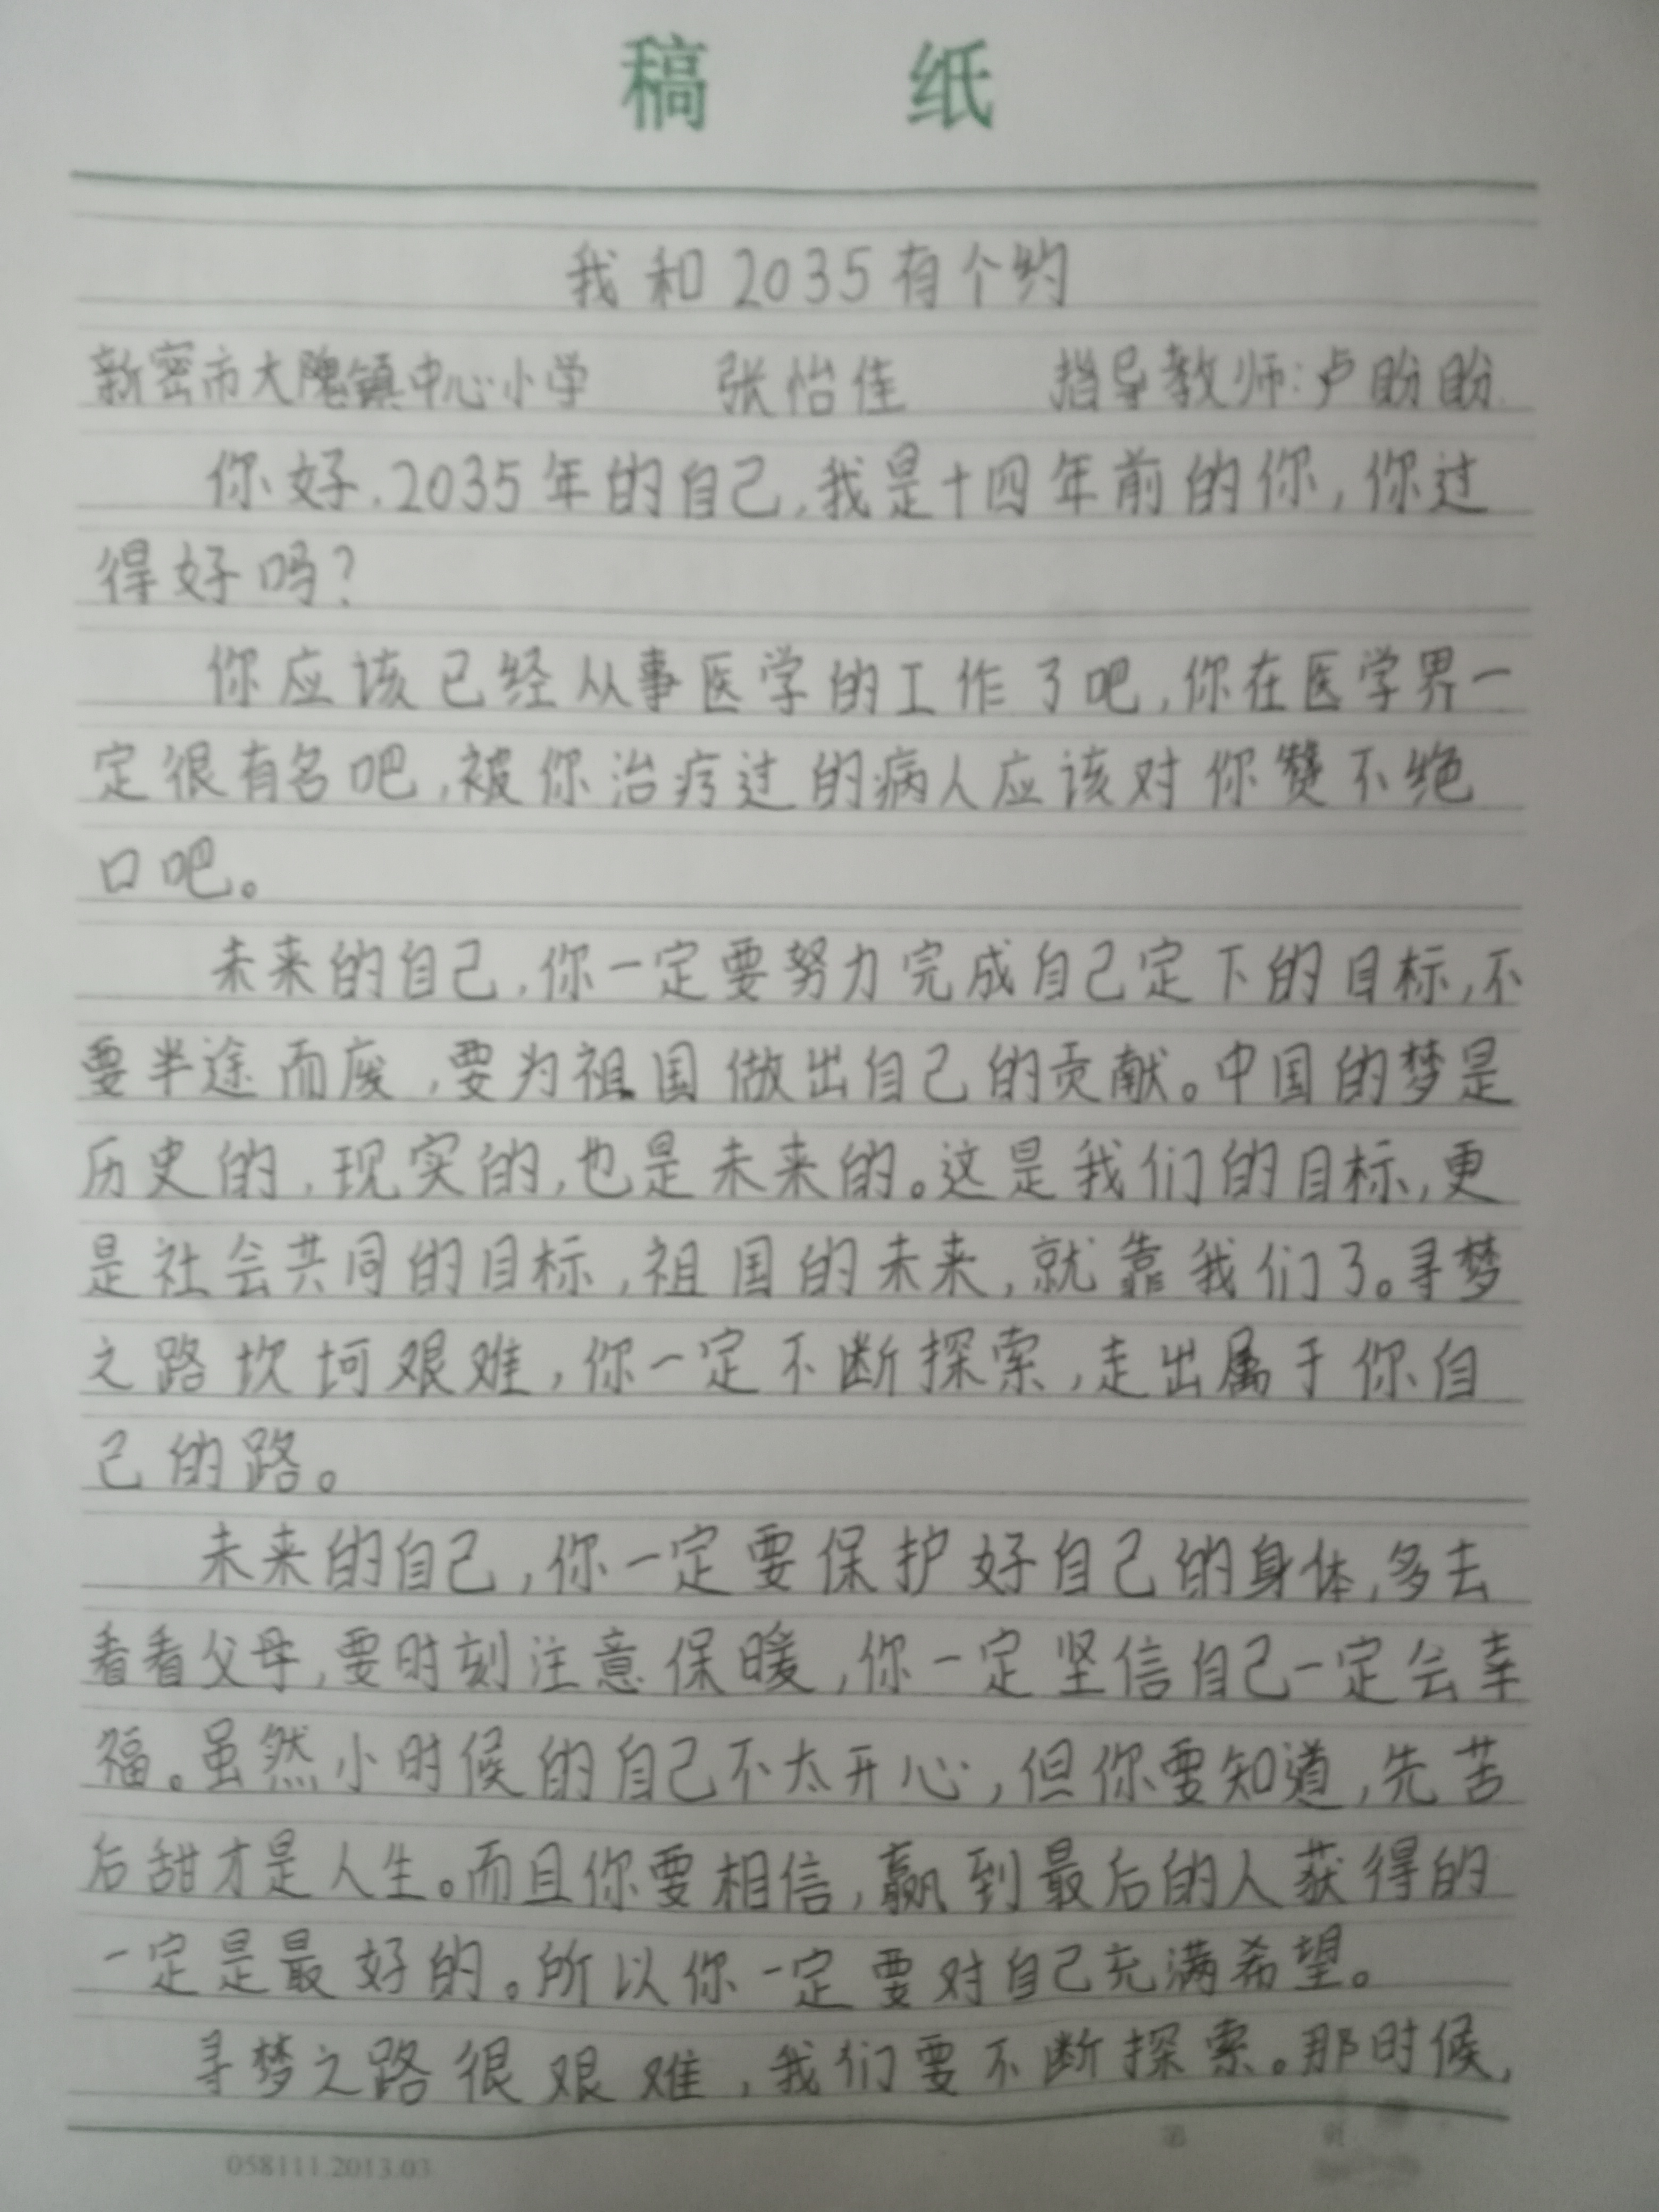 稿 纸
我和2035有个约
新密市大隗镇中心小学 张怡佳 指导教师:卢盼盼
你好,2035年的自己,我是十四年前的你,你过
得好吗?
你应该已经从事医学的工作了吧,你在医学界一
定很有名吧,被你治疗过的病人应该对你赞不绝
口吧。
未来的自己,你一定要努力完成自己定下的目标,不
要半途而废,要为祖国做出自己的贡献。中国的梦是
历史的,现实的,也是未来的。这是我们的目标,更
是社会共同的目标,祖国的未来,就靠我们了。寻梦
之路坎坷艰难,你一定不断探索,走出属于你自
己的路。
未来的自己,你一定要保护好自己的身体,多去
看看父母,要时刻注意保暖,你一定坚信自己一定会幸
福。虽然小时候的自己不太开心,但你要知道,先苦
后甜才是人生。而且你要相信,赢到最后的人获得的
一定是最好的。所以你一定要对自己充满希望。
寻梦之路很艰难,我们要不断探索。那时候,
058111.2013.03
第 页